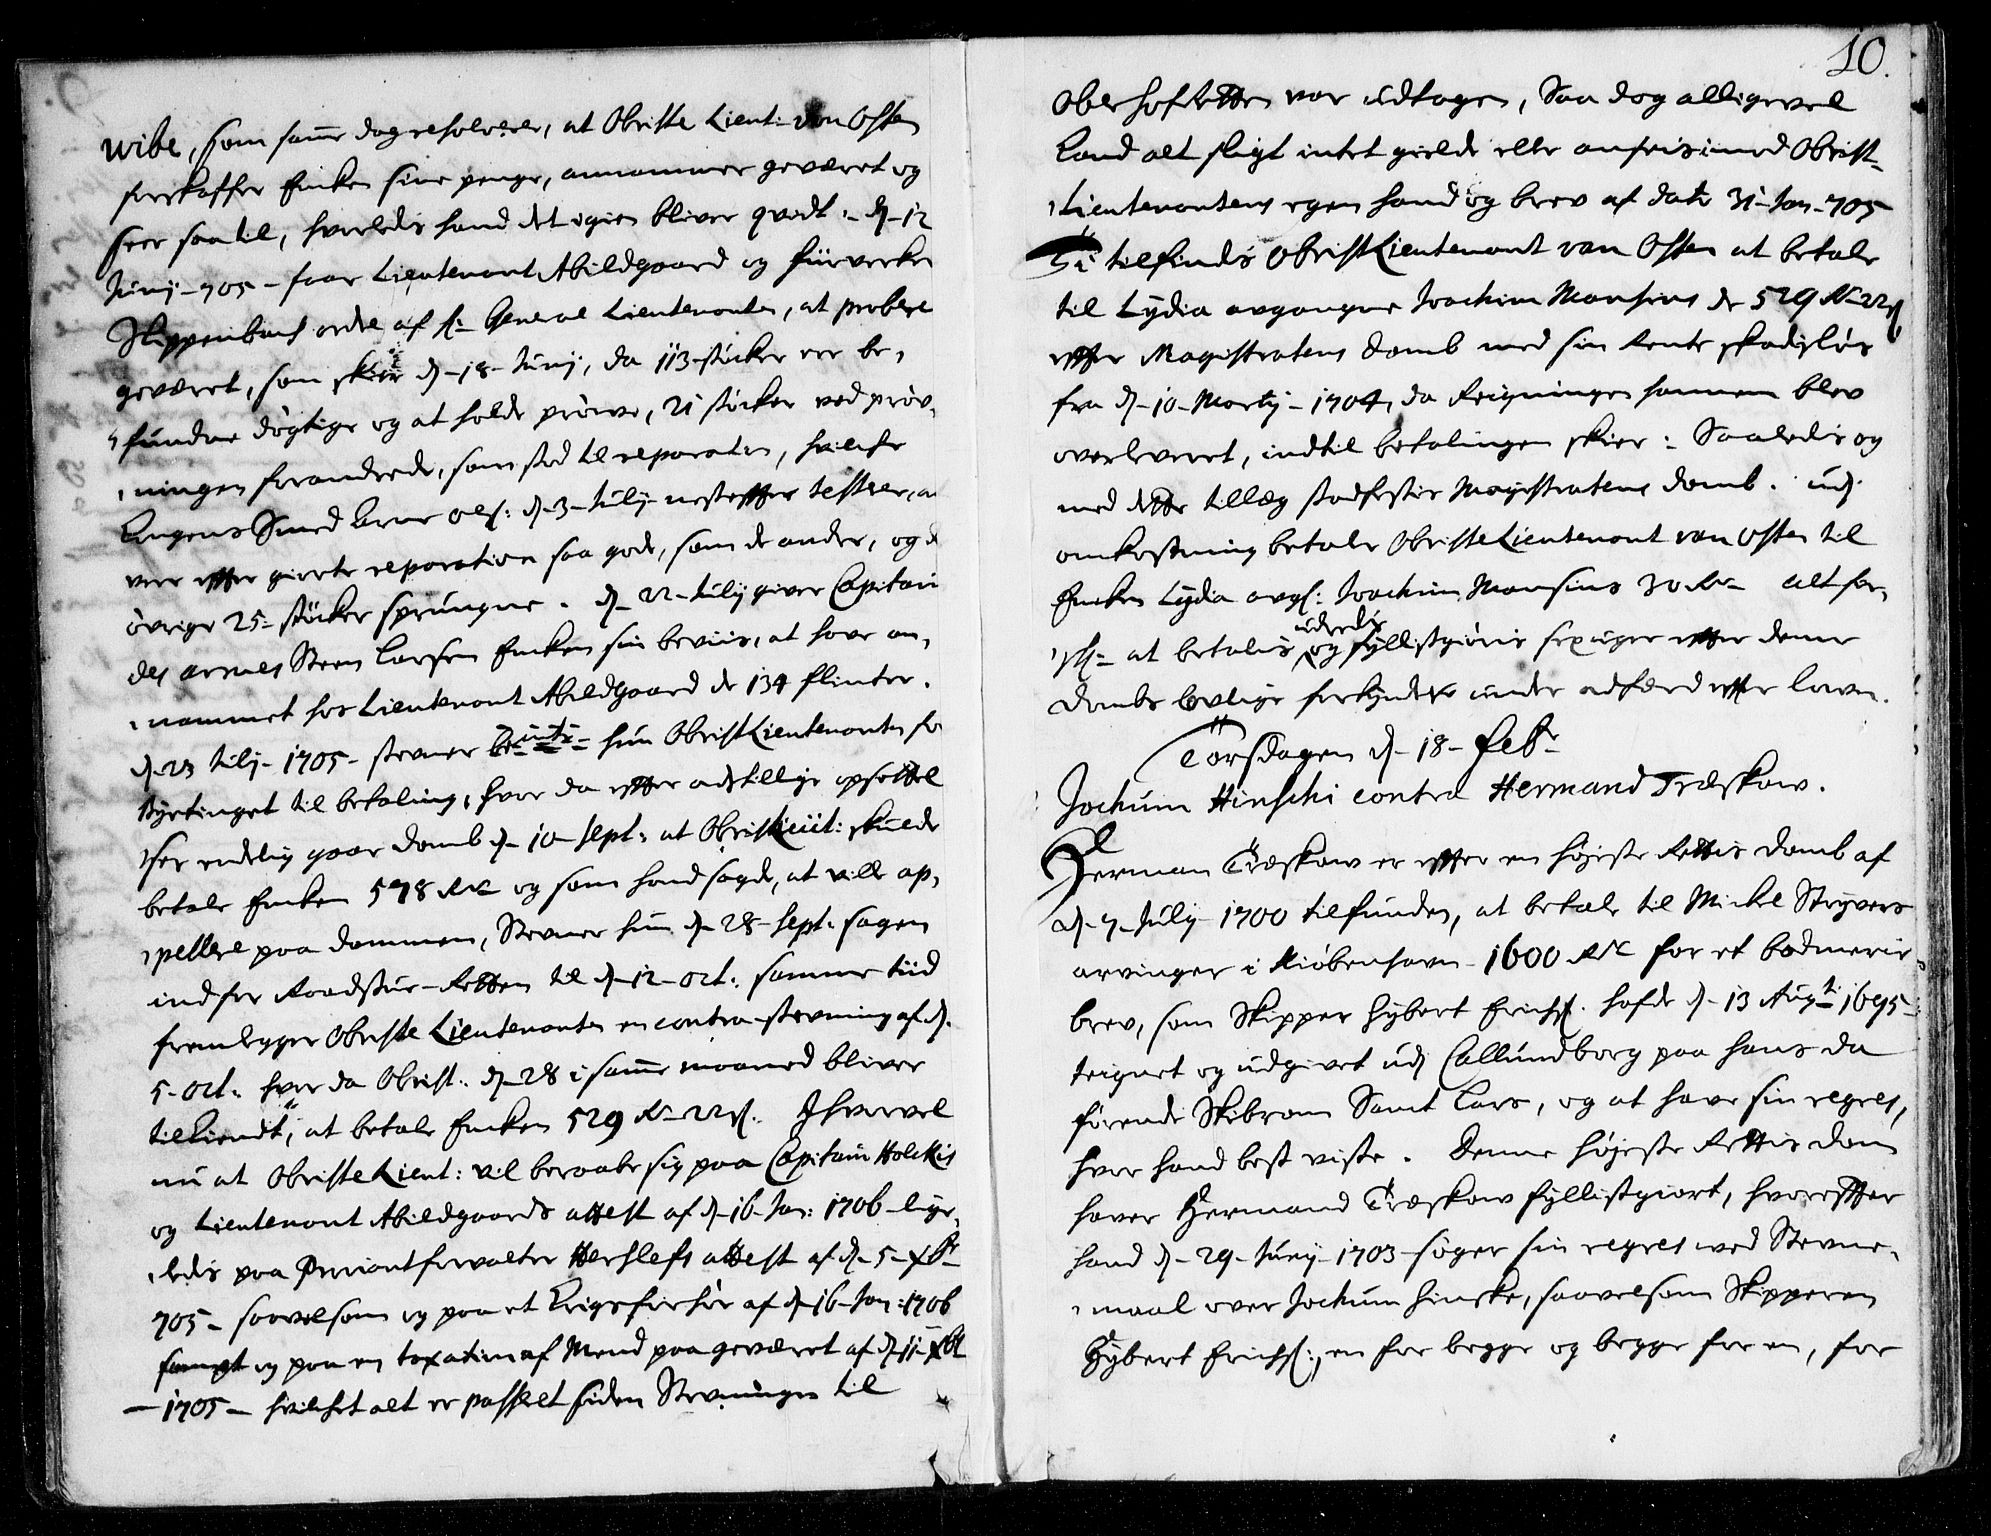 Wibe, som samme dag resolverer, at Obriste Lieut: von Osten
forskaffer Enken sine penge, annammer geværet og
seer saa til, hvorledis hand det igien bliver qvidt. d. 12
Junij 705 faar Lieutenant Abildgaard og fürverker
Skippenbach ordre af Hr. General Lieutenanten, at probere
geværet, som skeer d. 18 Junij, da 113 stücker er be-
fundne dögtige og at holde pröwe, 21 stöcker ved pröv-
ningen forandrede, som stod til reparation, hvilche
Kongens Smed Arne Ols: d. 3 Julij nestefter testerer, at
være efter giorte reparation saa gode, som de andre, og de
övrige 25 stöcker sprungne. d. 22 Julij giver Capitain
des armes Steen Larsen Enken sin beviis, at have an-
nammet hos Lieutenant Abildgaard de 134 flinter.
d. 23 Julij 1705 stevner hun Obrist Lieutenanten for
Byetinget til betaling, hvor da efter adskillige opsettel-
ser endelig gaar domb d. 10 Sept: at Obrist Leüt: skulde
betale Enken 578 Rdr og som hand sagde, at ville ap-
pellere paa dommen, Stevner hun d. 28 Sept. sagen
ind for Raadstue-Retten til d. 12 Oct: samme tiid
fremlegger Obriste Lieutenanten en contra-stevning af d.
5. Oct: hvor da Obrist: d. 28 i samme maaned bliver
tilkiendt, at betale Enken 529 Rdr 22 s. Ihvorvel
nu at Obriste Lieut: vil beraabe sig paa Capitain Holckis
og Lieutenant Abildgaards attest af d. 16 Jan: 1706 lige-
ledis paa Proviantforvalter Herslefs attest af d. 5 Xbr
705 saavelsom og paa et Krigsforhör af d. 16 Jan: 1706
og paa en taxation af Mend paa geværet af d. 11 Xbr
1705 hvilchet alt er passeret siden Stevningen til
10.
Oberhofretten var udtagen, Saa dog alligevel
kand alt sligt intet gielde eller ansees imod Obrist-
Lieutenantens egen hand og brev af dato 31 Jan 705
Ti tilfindis Obrist Lieutenant von Osten at betale
til Lydia avgangne Joachim Monsens de 529 Rdr 22 s
efter Magistratens domb med sin Rente skadislös
fra d. 10 Martij 1704, da Reigningen hannem blev
overleveret, indtil betalingen skier: Saaledis og
med dette tillæg stadfestis Magistratens domb. udj
omkostning betale Obriste Lieutenant von Osten til
Enken Lydia avg: Joachim Monsens 30 Rdr alt for-
at betalis udredis og fyllistgiöris sex uger efter denne
dombs lovlige forkyndelse under adfærd efter loven.
Torsdagen d. 18 Febr
Jochum Hinschi contra Hermand Træskow.
Herman Træskow er efter en höjeste Rettis domb af
d. 7 Julij 1700 tilfunden, at betale til Mickel Stryvers
arvinger i Kiöbenhavn 1600 Rdr for et bodmerie
brev, som Skipper Hybert Erichs. hafde d. 13 Augti 1695
teignet og udgivet udj Callundborg paa hans da
förende Skibrom Sanct Lars, og at have sin regres,
hvor hand best viste. Denne höjeste Rettis dom
haver Hermand Træskow fyllistgiort, hvorefter
hand d. 29 Junij 1703 söger sin regres med Stevne-
maal over Jochum Hinske, saavelsom Skipperen
Hybert Erichs:, en for begge og begge for en, for